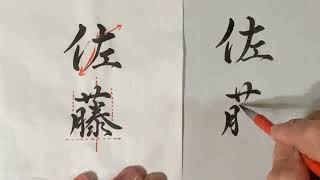 佐藤
佐